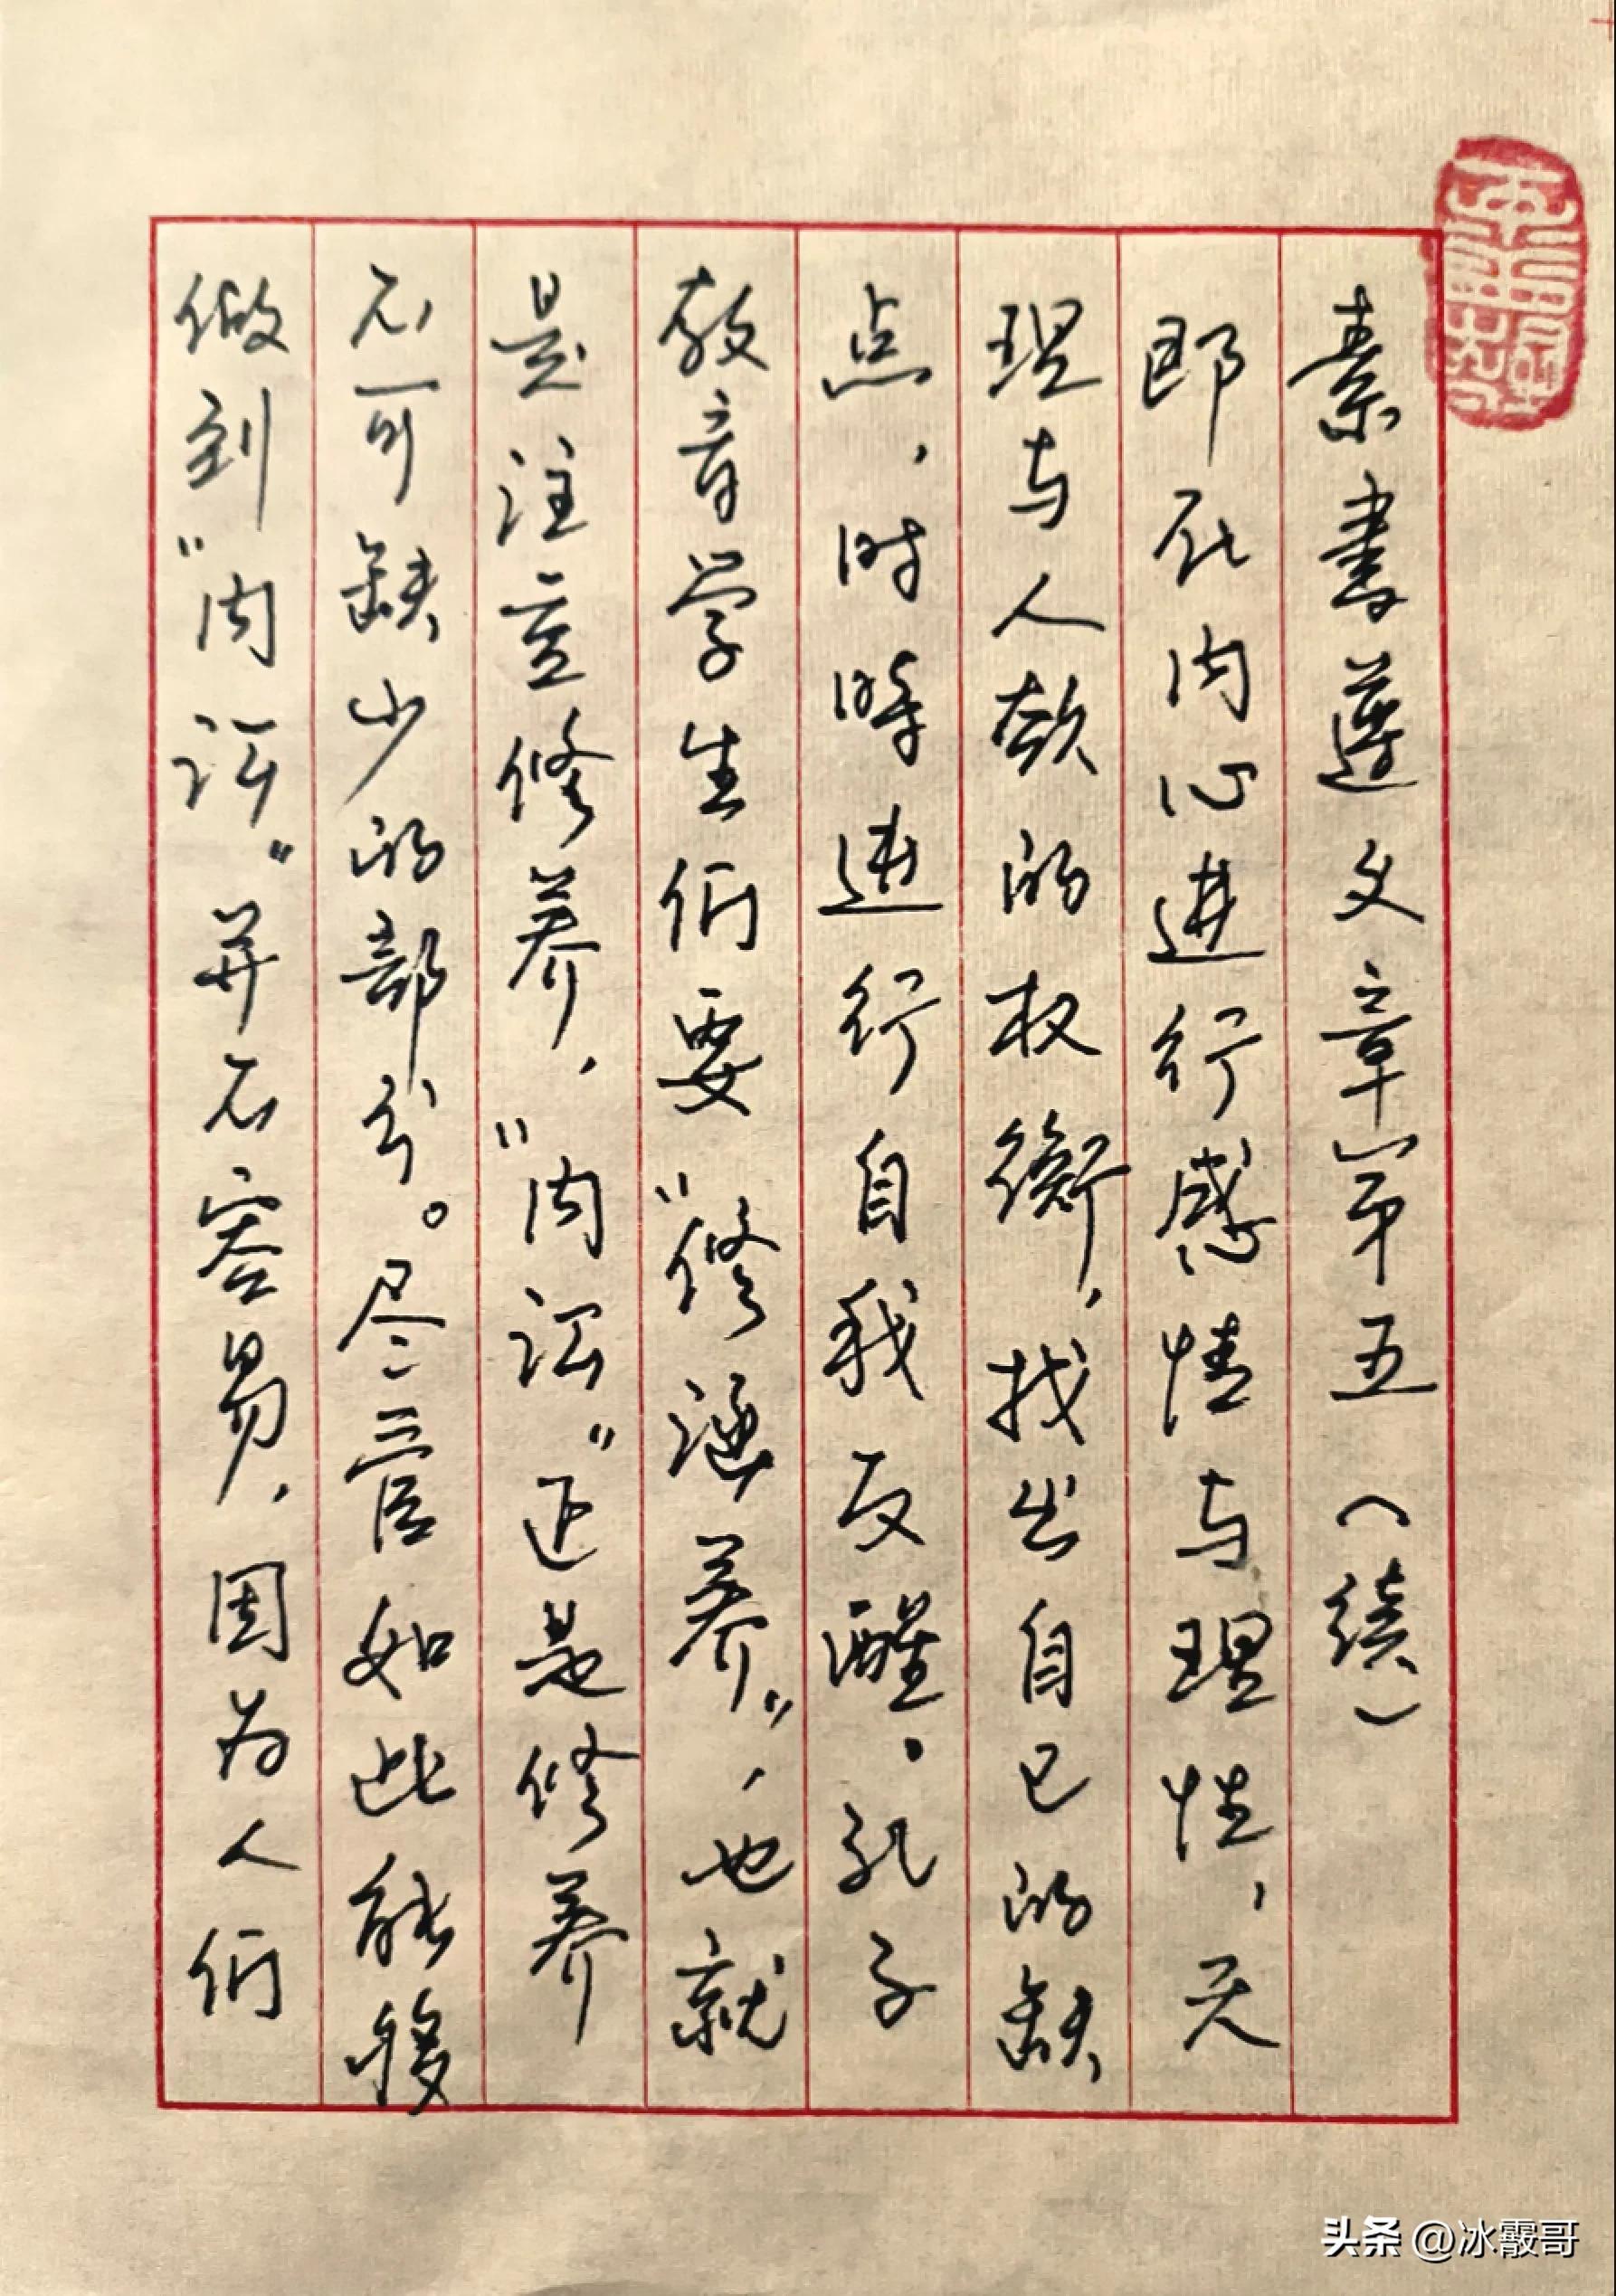 素書遵义章第五（续）
即在内心进行感情与理性，天
理与人欲的权衡，找出自己的缺
点，时时进行自我反醒。孔子
教育学生们要“修涵养”，也就
是注意修养，“内讼”正是修养
不可缺少的部分。尽管如此能够
做到“内讼”并不容易，因为人们
头条 @冰霰哥